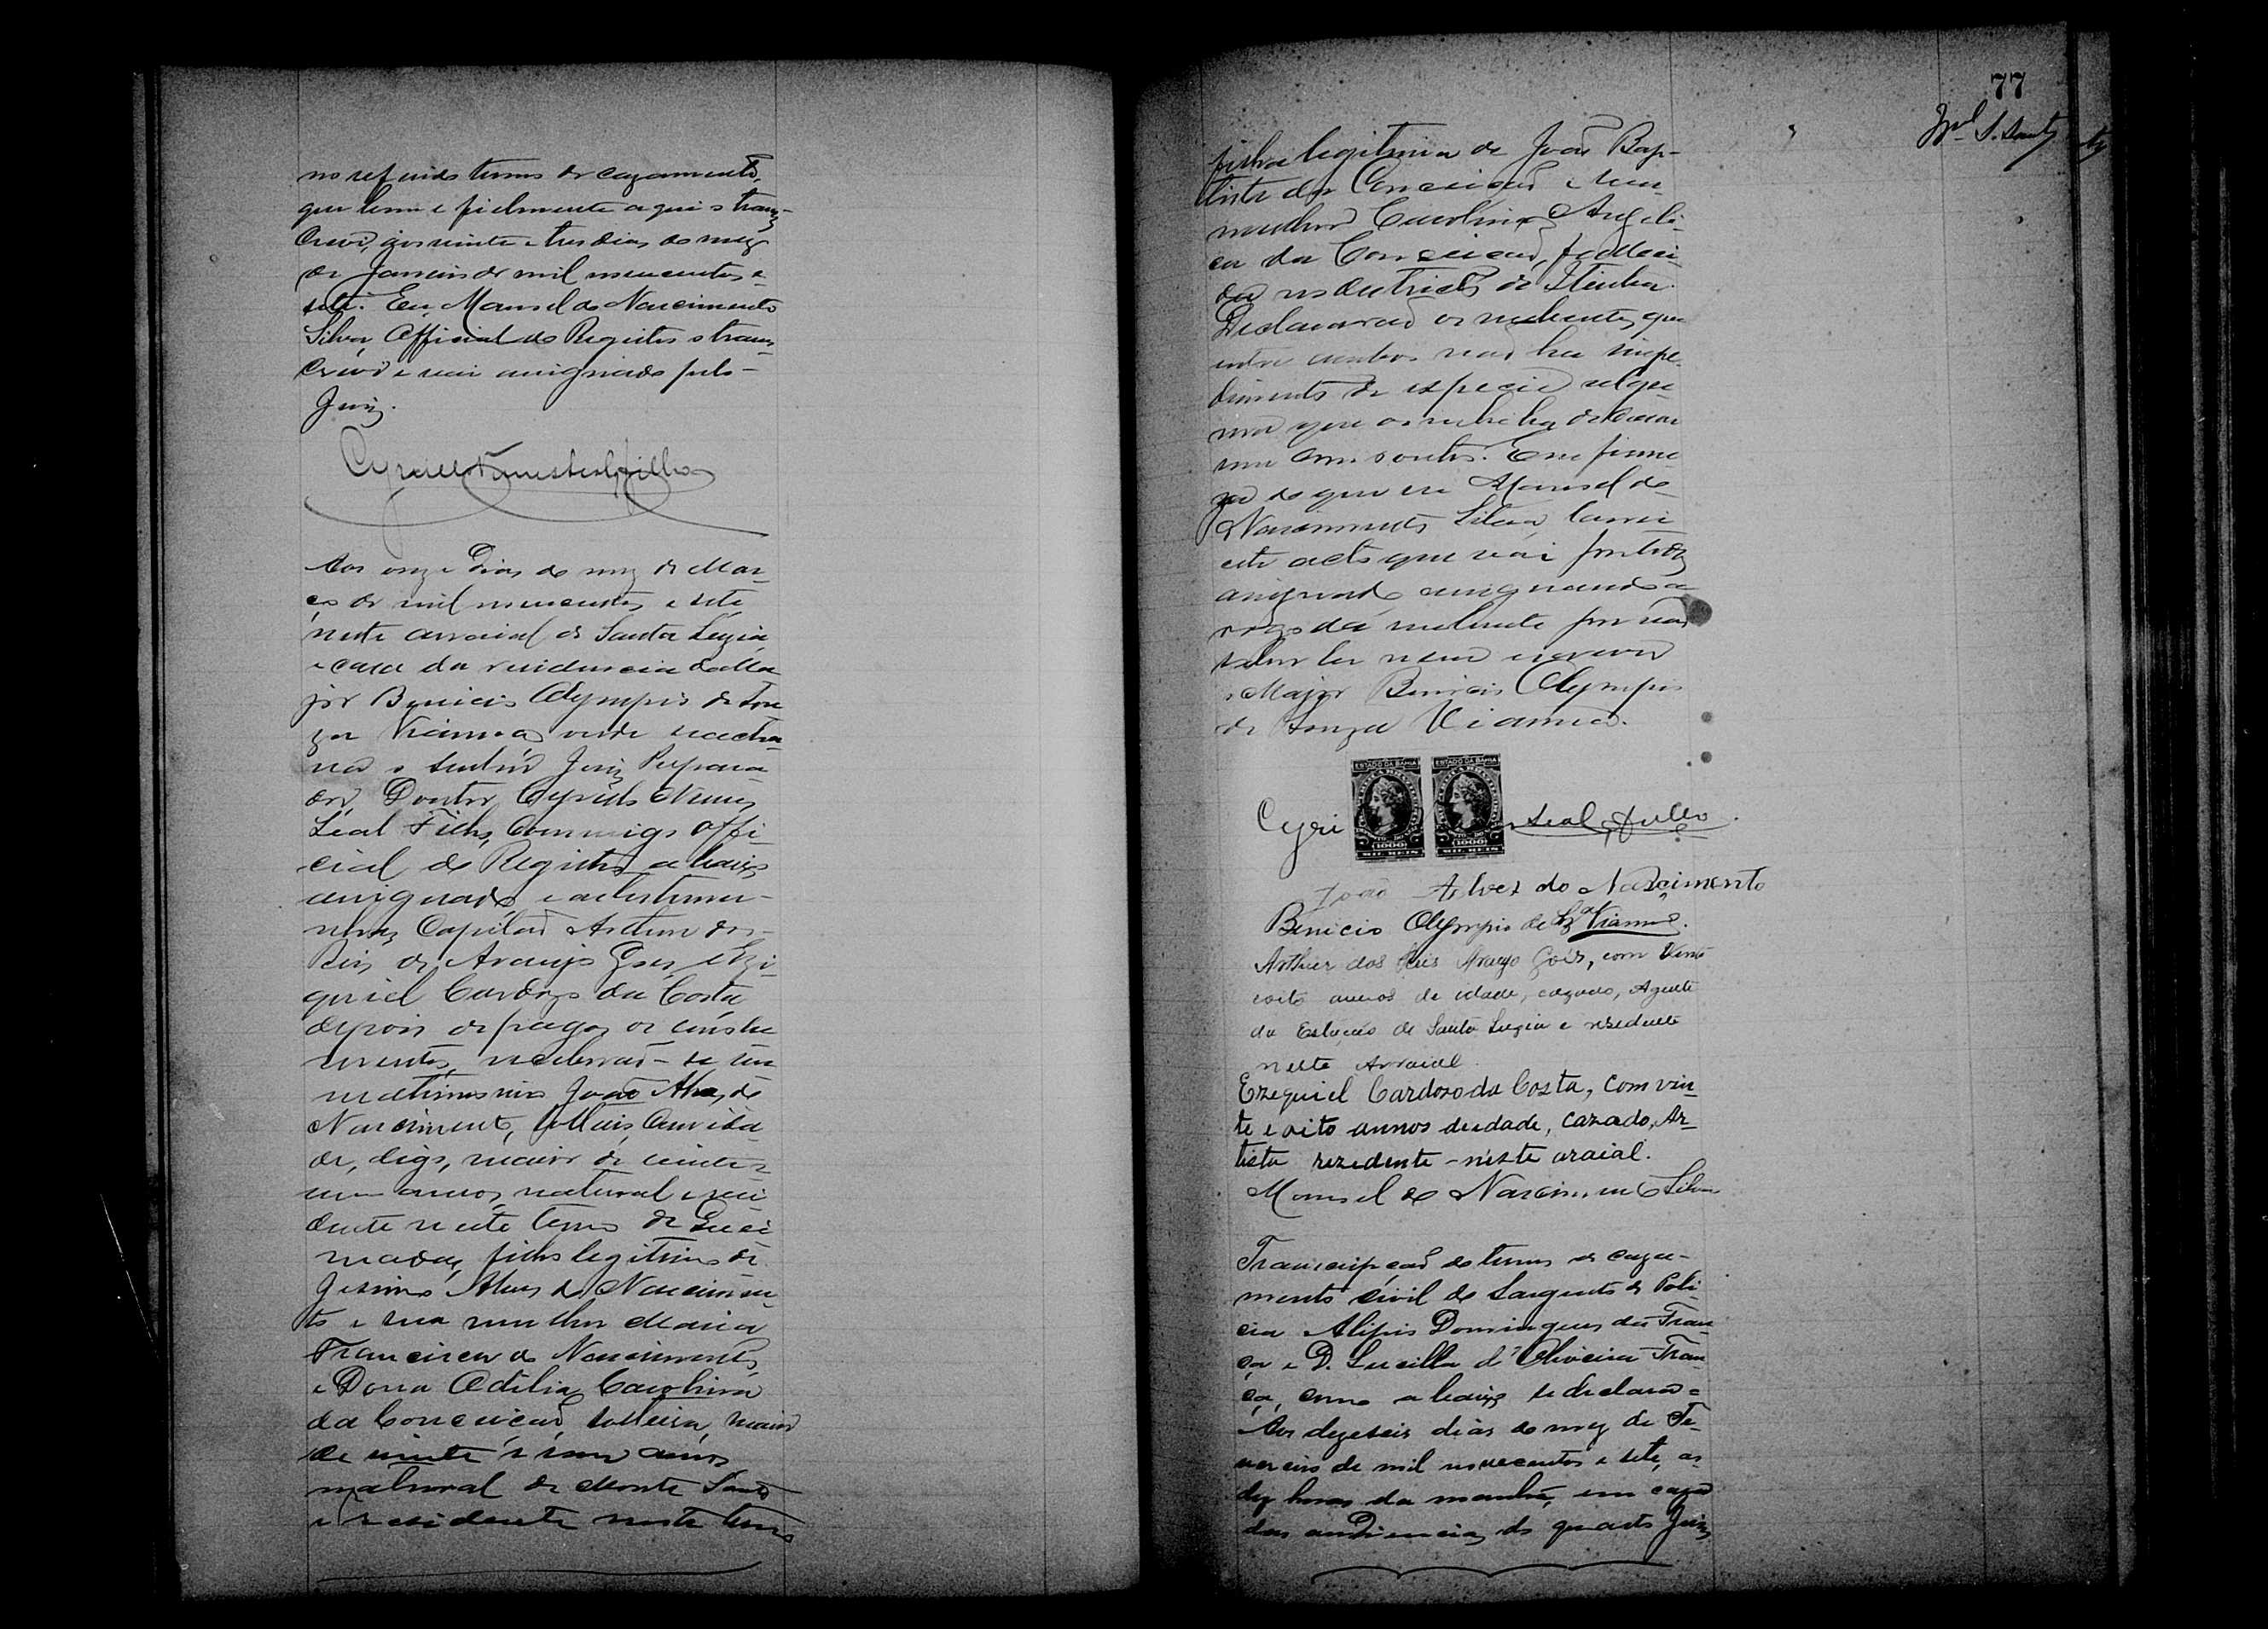 no referido termo de cazamento,
que bem e fielmente aqui o trans-
crevi, aos vinte e tres dias do mez
de Janeiro de mil novecentos e
sete. Eu, Manoel do Nascimento
Silva, Official do Registro o trans-
crevi e vai assignado pelo
Juiz.
Aos onze dias do mez de Mar-
ço de mil novecentos e sete,
neste arraial de Santa Luzia
e casa da residencia do Ma-
jor Benicio Olympio de Sou-
za Vianna, onde se acha-
va o senhor Juiz Prepara-
dor, Doutor Cyrillo Nunes
Leal Filho, commigo offi-
cial do Registro abaixo
assignado, e as testemu-
nhas Capitão Arthur dos
Reis de Araujo Goes, Eze-
quiel Cardozo da Costa,
depois de pagos os emolu-
mentos, receberão-se em
matrimonio João Alves do
Nascimento, solteiro,
digo, maior de vinte e
um annos, natural e resi-
dente neste termo de Quei-
madas, filho legitimo de
Jesuino Alves do Nascimen-
to e sua mulher Maria
Francisca do Nascimento,
e Dona Odilia Carolina
da Conceição, solteira, maior
de vinte e um annos
natural de Monte Santo
e residente neste termo
77
filha legitima de João Bap-
tista da Conceição e sua
mulher Carolina Angeli-
ca da Conceição, falleci-
da no districto de Itiuba.
Declararão os nubentes, que
entre ambos não ha impe-
dimento de especie algu-
ma que os inhiba de cazar
um com o outro. Em firme-
za do que eu Manoel do
Nascimento Silva, lavrei
este acto que vai por todos
assignado, assignando a
rogo da nubente por não
saber ler nem escrever
o Major Benicio Olympio
de Souza Vianna.
ESTADO DA BAHIA ESTADO DA BAHIA
(1000) (1000)
MIL REIS MIL REIS
Cyri Leal Filho.
João Alves do Nascimento
Benicio Olympio de Sza Vianna.
Arthur dos Reis Araujo Goes, com vinte
oito annos de idade, cazado, Agente
da Estação de Santa Luzia e residente
neste Arraial.
Ezequiel Cardoso da Costa, com vin-
te e oito annos deedade, cazado, Ar-
tista rezedente - neste araial.
Manoel do Nascimento Silva
Transcripção do termo de caza-
mento civil do Sargento de Poli-
cia Alipio Domingues da Fran-
ça e D. Lucilla d'Oliveira Fran-
ça, como abaixo se declara =
Aos dezeseis dias do mez de Fe-
vereiro de mil novecentos e sete, as
dez horas da manhã, em caza
das audiencias do quarto Juiz